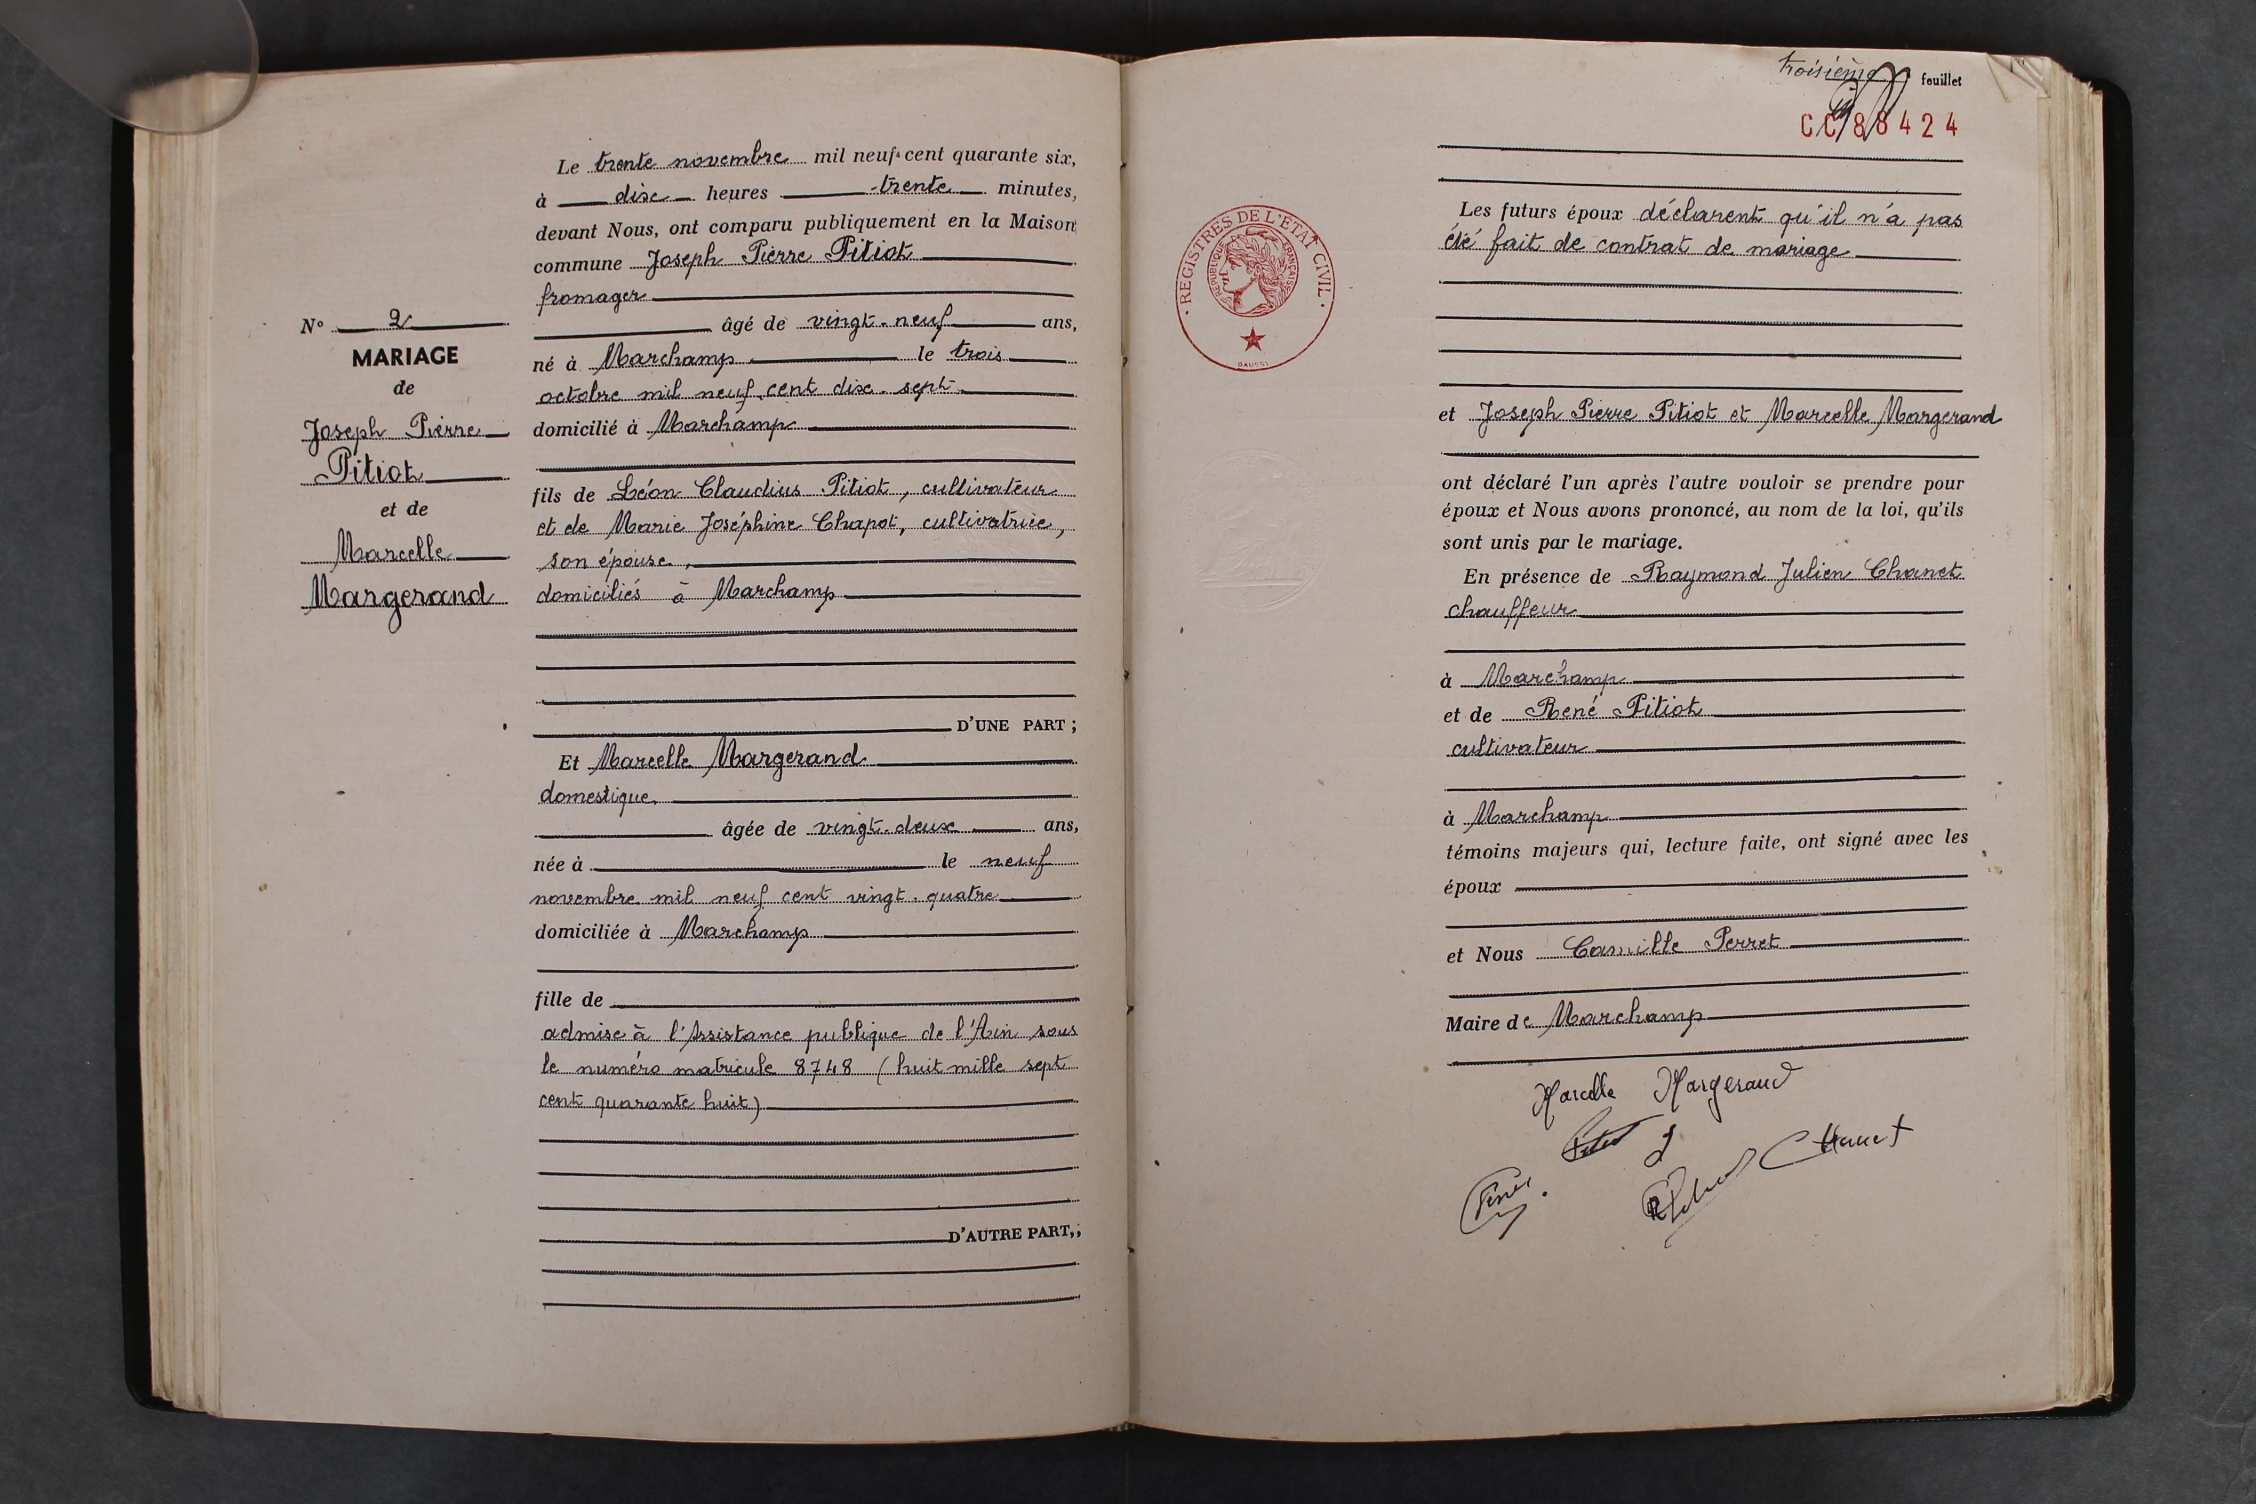 N° 2
MARIAGE
de
Joseph Pierre
Pitiot
et de
Marcelle
Margerand
Le trente novembre mil neuf cent quarante six,
à dix heures trente minutes,
devant Nous, ont comparu publiquement en la Maison
commune Joseph Pierre Pitiot
fromager
âgé de vingt-neuf ans,
né à Marchamp le trois
octobre mil neuf cent dix-sept
domicilié à Marchamp
fils de Léon Claudius Pitiot, cultivateur
et de Marie Joséphine Chapot, cultivatrice,
son épouse,
domiciliés à Marchamp
D'UNE PART ;
Et Marcelle Margerand
domestique
âgée de vingt-deux ans,
née à le neuf
novembre mil neuf cent vingt-quatre
domiciliée à Marchamp
fille de
admise à l'Assistance publique de l'Ain sous
le numéro matricule 8748 (huit mille sept
cent quarante huit)
D'AUTRE PART,;
troisième feuillet
CC 88424
REGISTRES DE L'ETAT CIVIL
REPUBLIQUE FRANÇAISE
Les futurs époux déclarent qu'il n'a pas
été fait de contrat de mariage
et Joseph Pierre Pitiot et Marcelle Margerand
ont déclaré l'un après l'autre vouloir se prendre pour
époux et Nous avons prononcé, au nom de la loi, qu'ils
sont unis par le mariage.
En présence de Raymond Julien Chanet
chauffeur
à Marchamp
et de René Pitiot
cultivateur
à Marchamp
témoins majeurs qui, lecture faite, ont signé avec les
époux
et Nous Camille Perret
Maire de Marchamp
Marcelle Margerand
Chanet